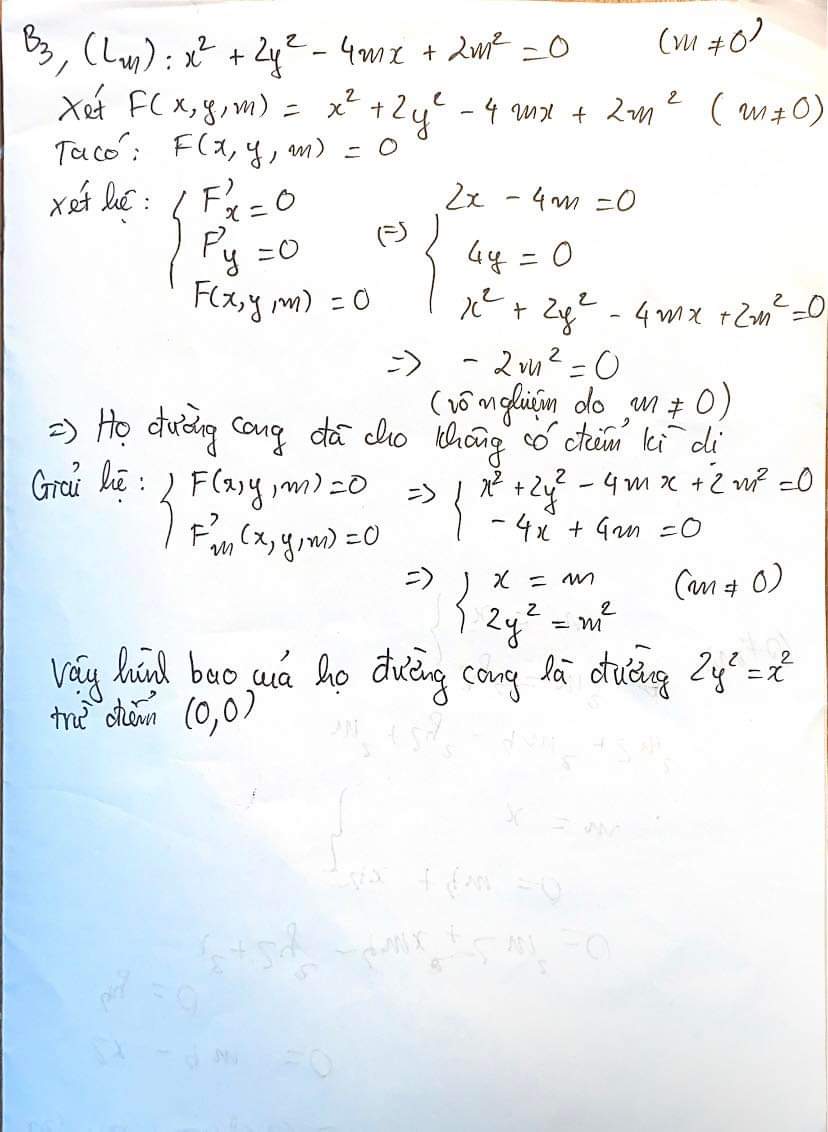 B3, (Lm): x² + 2y² - 4mx + 2m² = 0 (m ≠ 0)
Xét F(x,y,m) = x² + 2y² - 4mx + 2m² (m ≠ 0)
Ta có: F(x,y,m) = 0
Xét hệ: { F'x = 0 (=) { 2x - 4m = 0
F'y = 0 4y = 0
F(x,y,m) = 0 x² + 2y² - 4mx + 2m² = 0
=> - 2m² = 0
(vô nghiệm do m ≠ 0)
=> Họ đường cong đã cho không có điểm kì dị
Giải hệ: { F(x,y,m) = 0 => { x² + 2y² - 4mx + 2m² = 0
F'm(x,y,m) = 0 - 4x + 4m = 0
=> { x = m (m ≠ 0)
2y² = m²
Vậy hình bao của họ đường cong là đường 2y² = x²
trừ điểm (0,0)